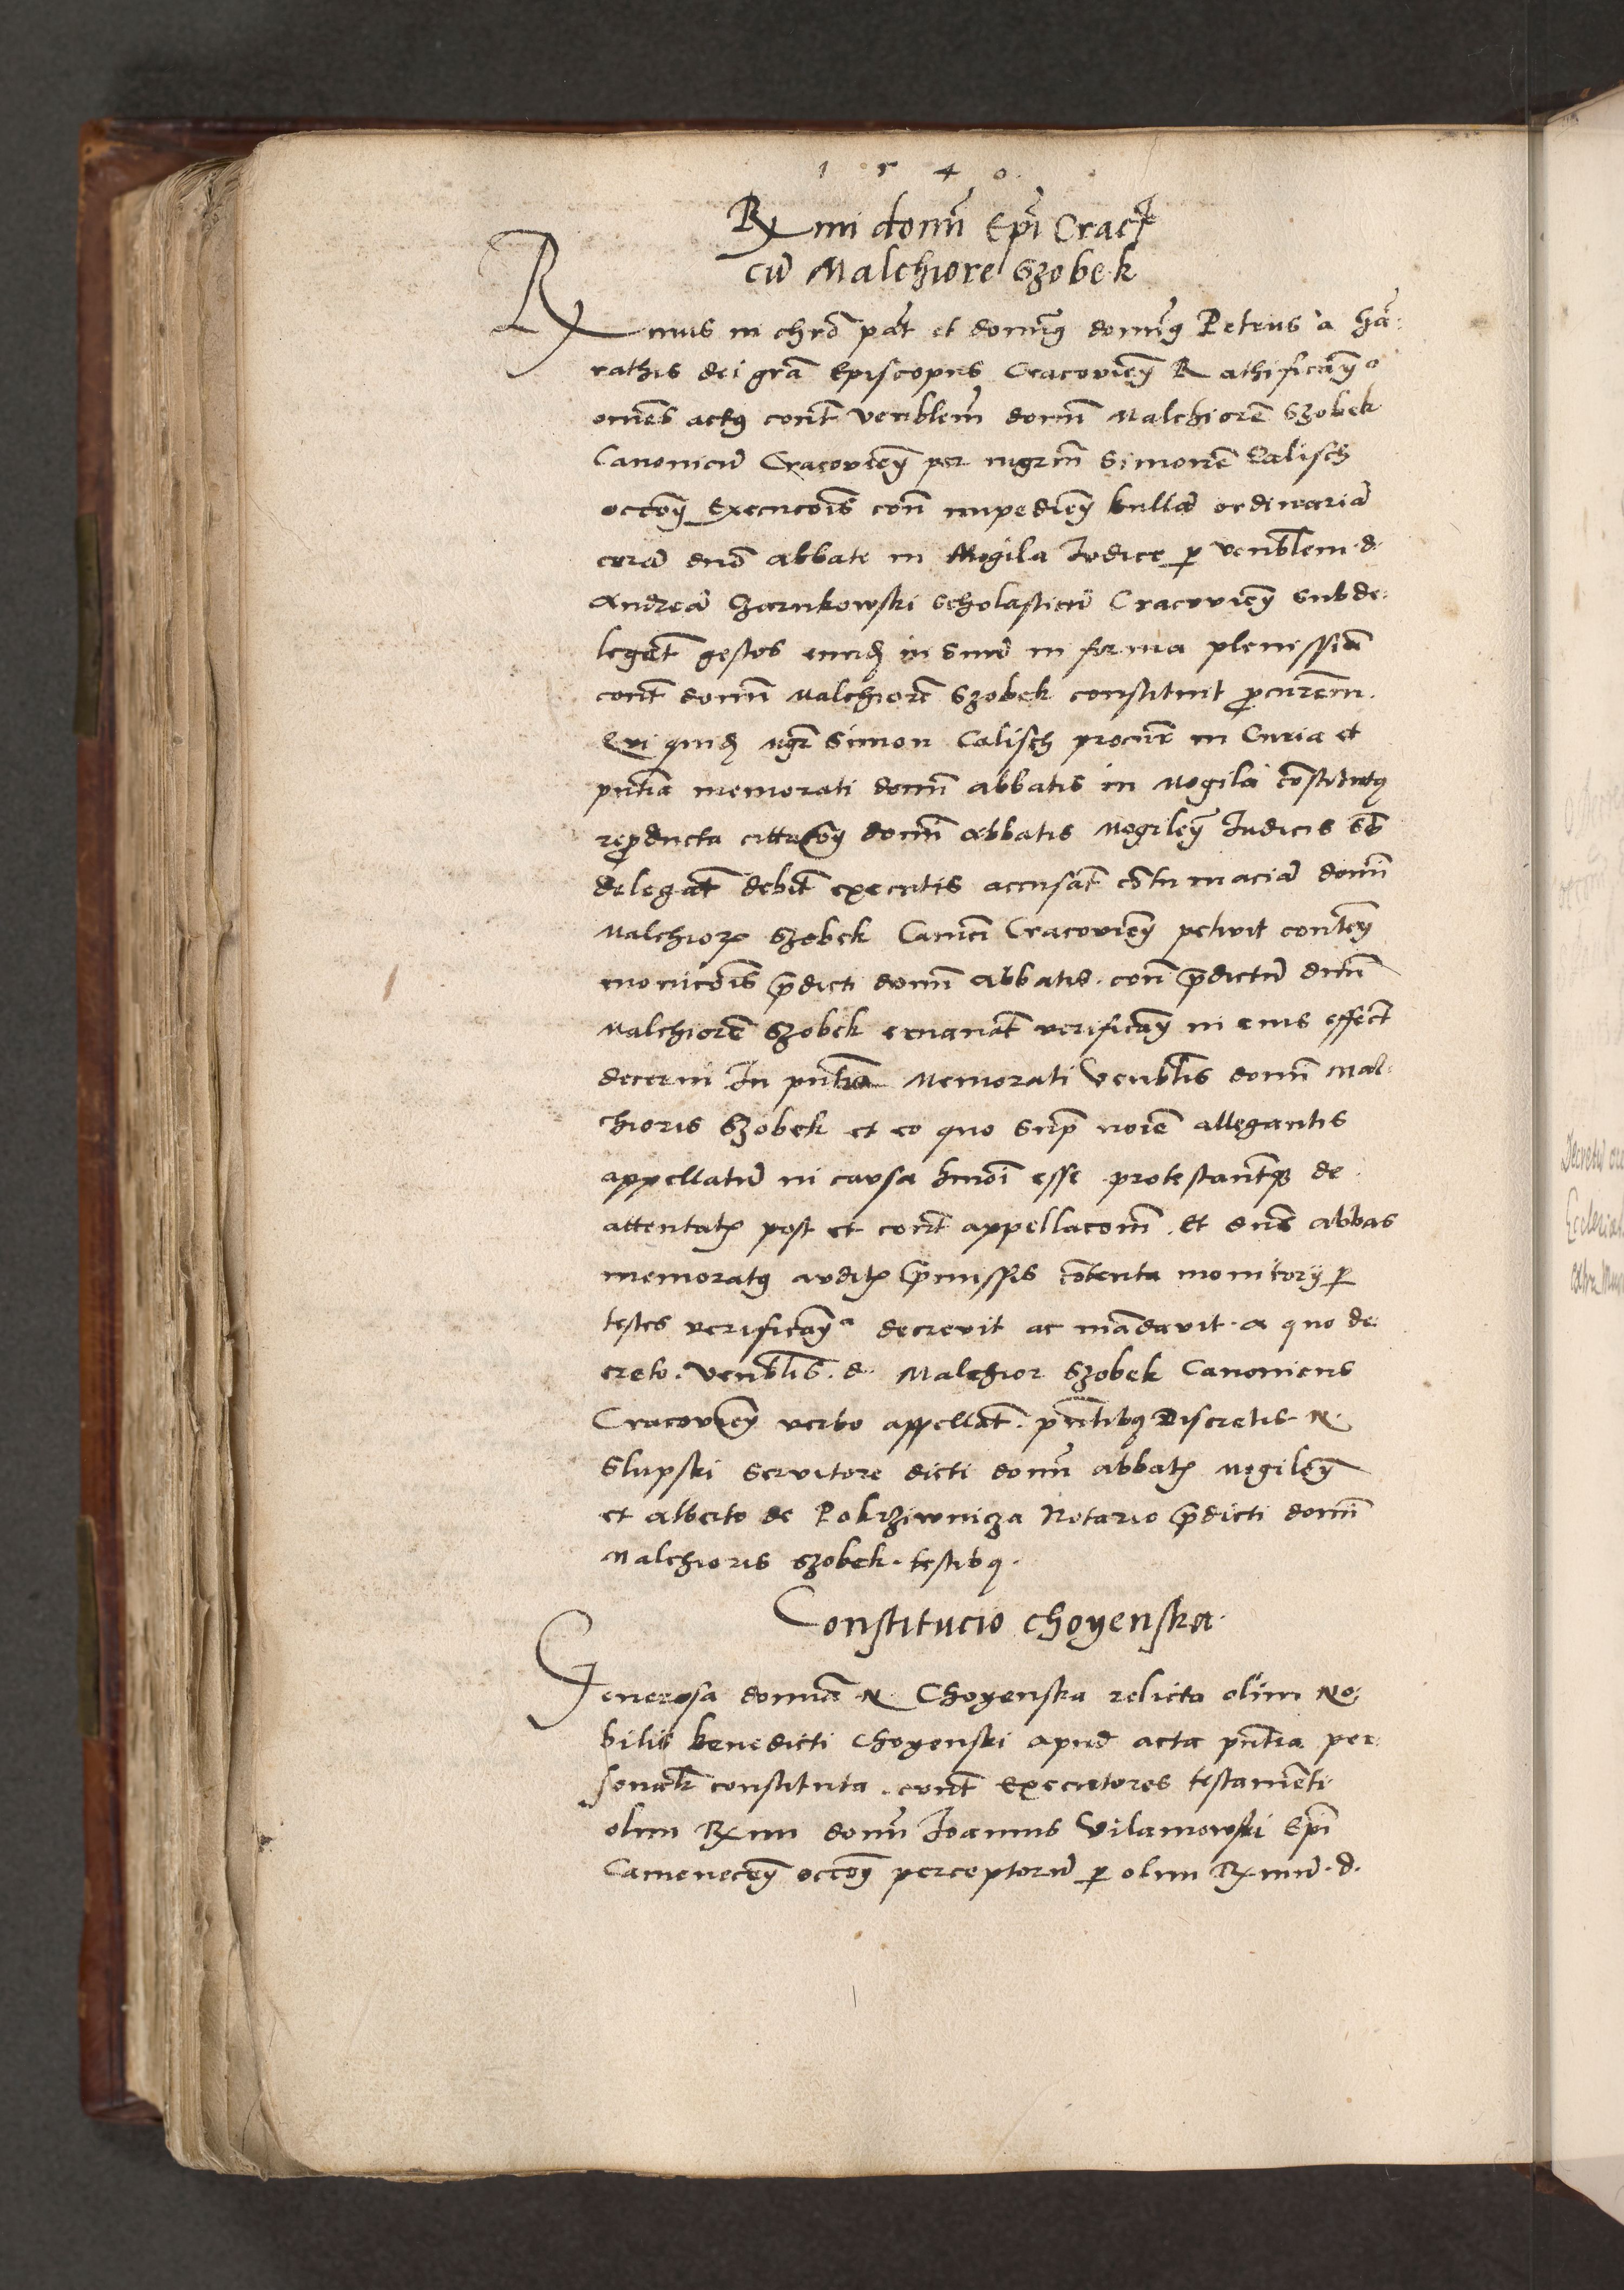 1540
Rmi domī Epī Crac
cū Malchiore Szobek
Rmus in chrō pat et domīs domīs Petrus a Ga:
rathis dei grā Episcopus Cracovień Rathificań
omēs actus cont venblem domī Malchiorē Szobek
Canonicū Cracovień per mgrm Simonē Calisch
occoń Execucōis con impedień bullā ordinariā
corā dnō abbate in Mogila Iudice p venblem d.
Andreā Czarnkowski Scholasticū Cracovień subde:
legat gestos eundē in suū in forma plenissiā
cont domī Malchiorē Szobek constituit procurēm.
Qui quidē mgr Simon Calisch procur in Curia et
pntia memorati domī abbatis in Mogila constitutus
reproducta cittacoń domī abbatis Mogileń Iudicis sb
delegat debit executis accusat contumaciā domī
Malchior Szobek Canīci Cracovień petivit conteń
monicōis predicti domī abbatis. con predictū dnū
Malchiorē Szobek emanat verificań in eius effect
decerni In pntia Memorati Venblis domī Mal-
chioris Szobek et eo quo supra noīe allegantis
appellatū in causa hmoi esse protestantis de
attentatis post et cont appellacom. Et dns abbas
memoratus auditis premissis contenta monitorij p
testes verificań decrevit ac mandavit. a quo de
creto. Venblis. d. Malchior Szobek Canonicus
Cracovień verbo appellat. pntibus Discretis N.
Slupski servitore dicti domī abbatis Mogileń
et alberto de Pokrziwnicza Notario predicti domī
Malchioris Szobek. testibus.
Constitucio Choyenska.
Generosa domīa N. Choyenska relicta olim No:
bilis benedicti Choyenski apud acta pntia per
sonalr constituta. cont Executores testamenti
olim Rmi domī Ioannis Vilamowski Epī
Cameneceń occoń perceptorū p olim Rmū. d.
Decretū